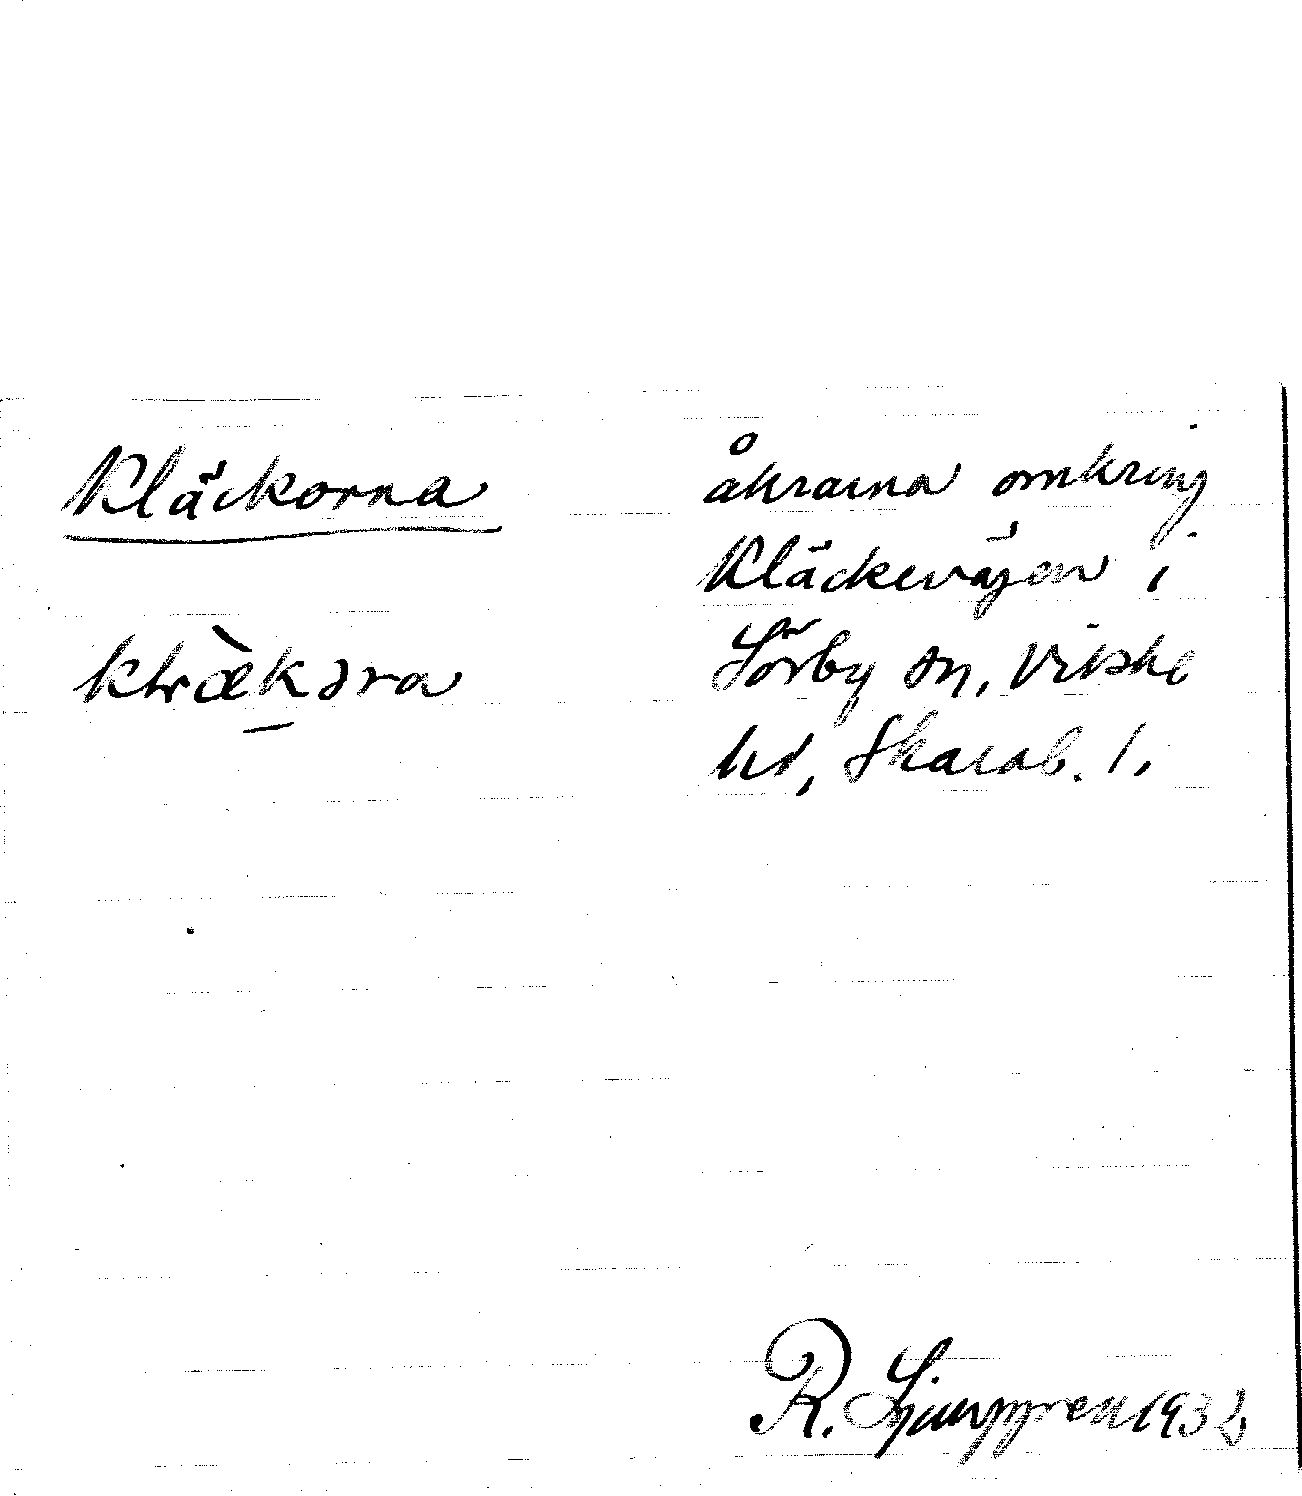 Kläckorna
klæ̀kɔra
åkrarna omkring
Kläckevägen i
Sörby sn, Vilske
hd, Skarab. l.
R. Ljunggren 1932